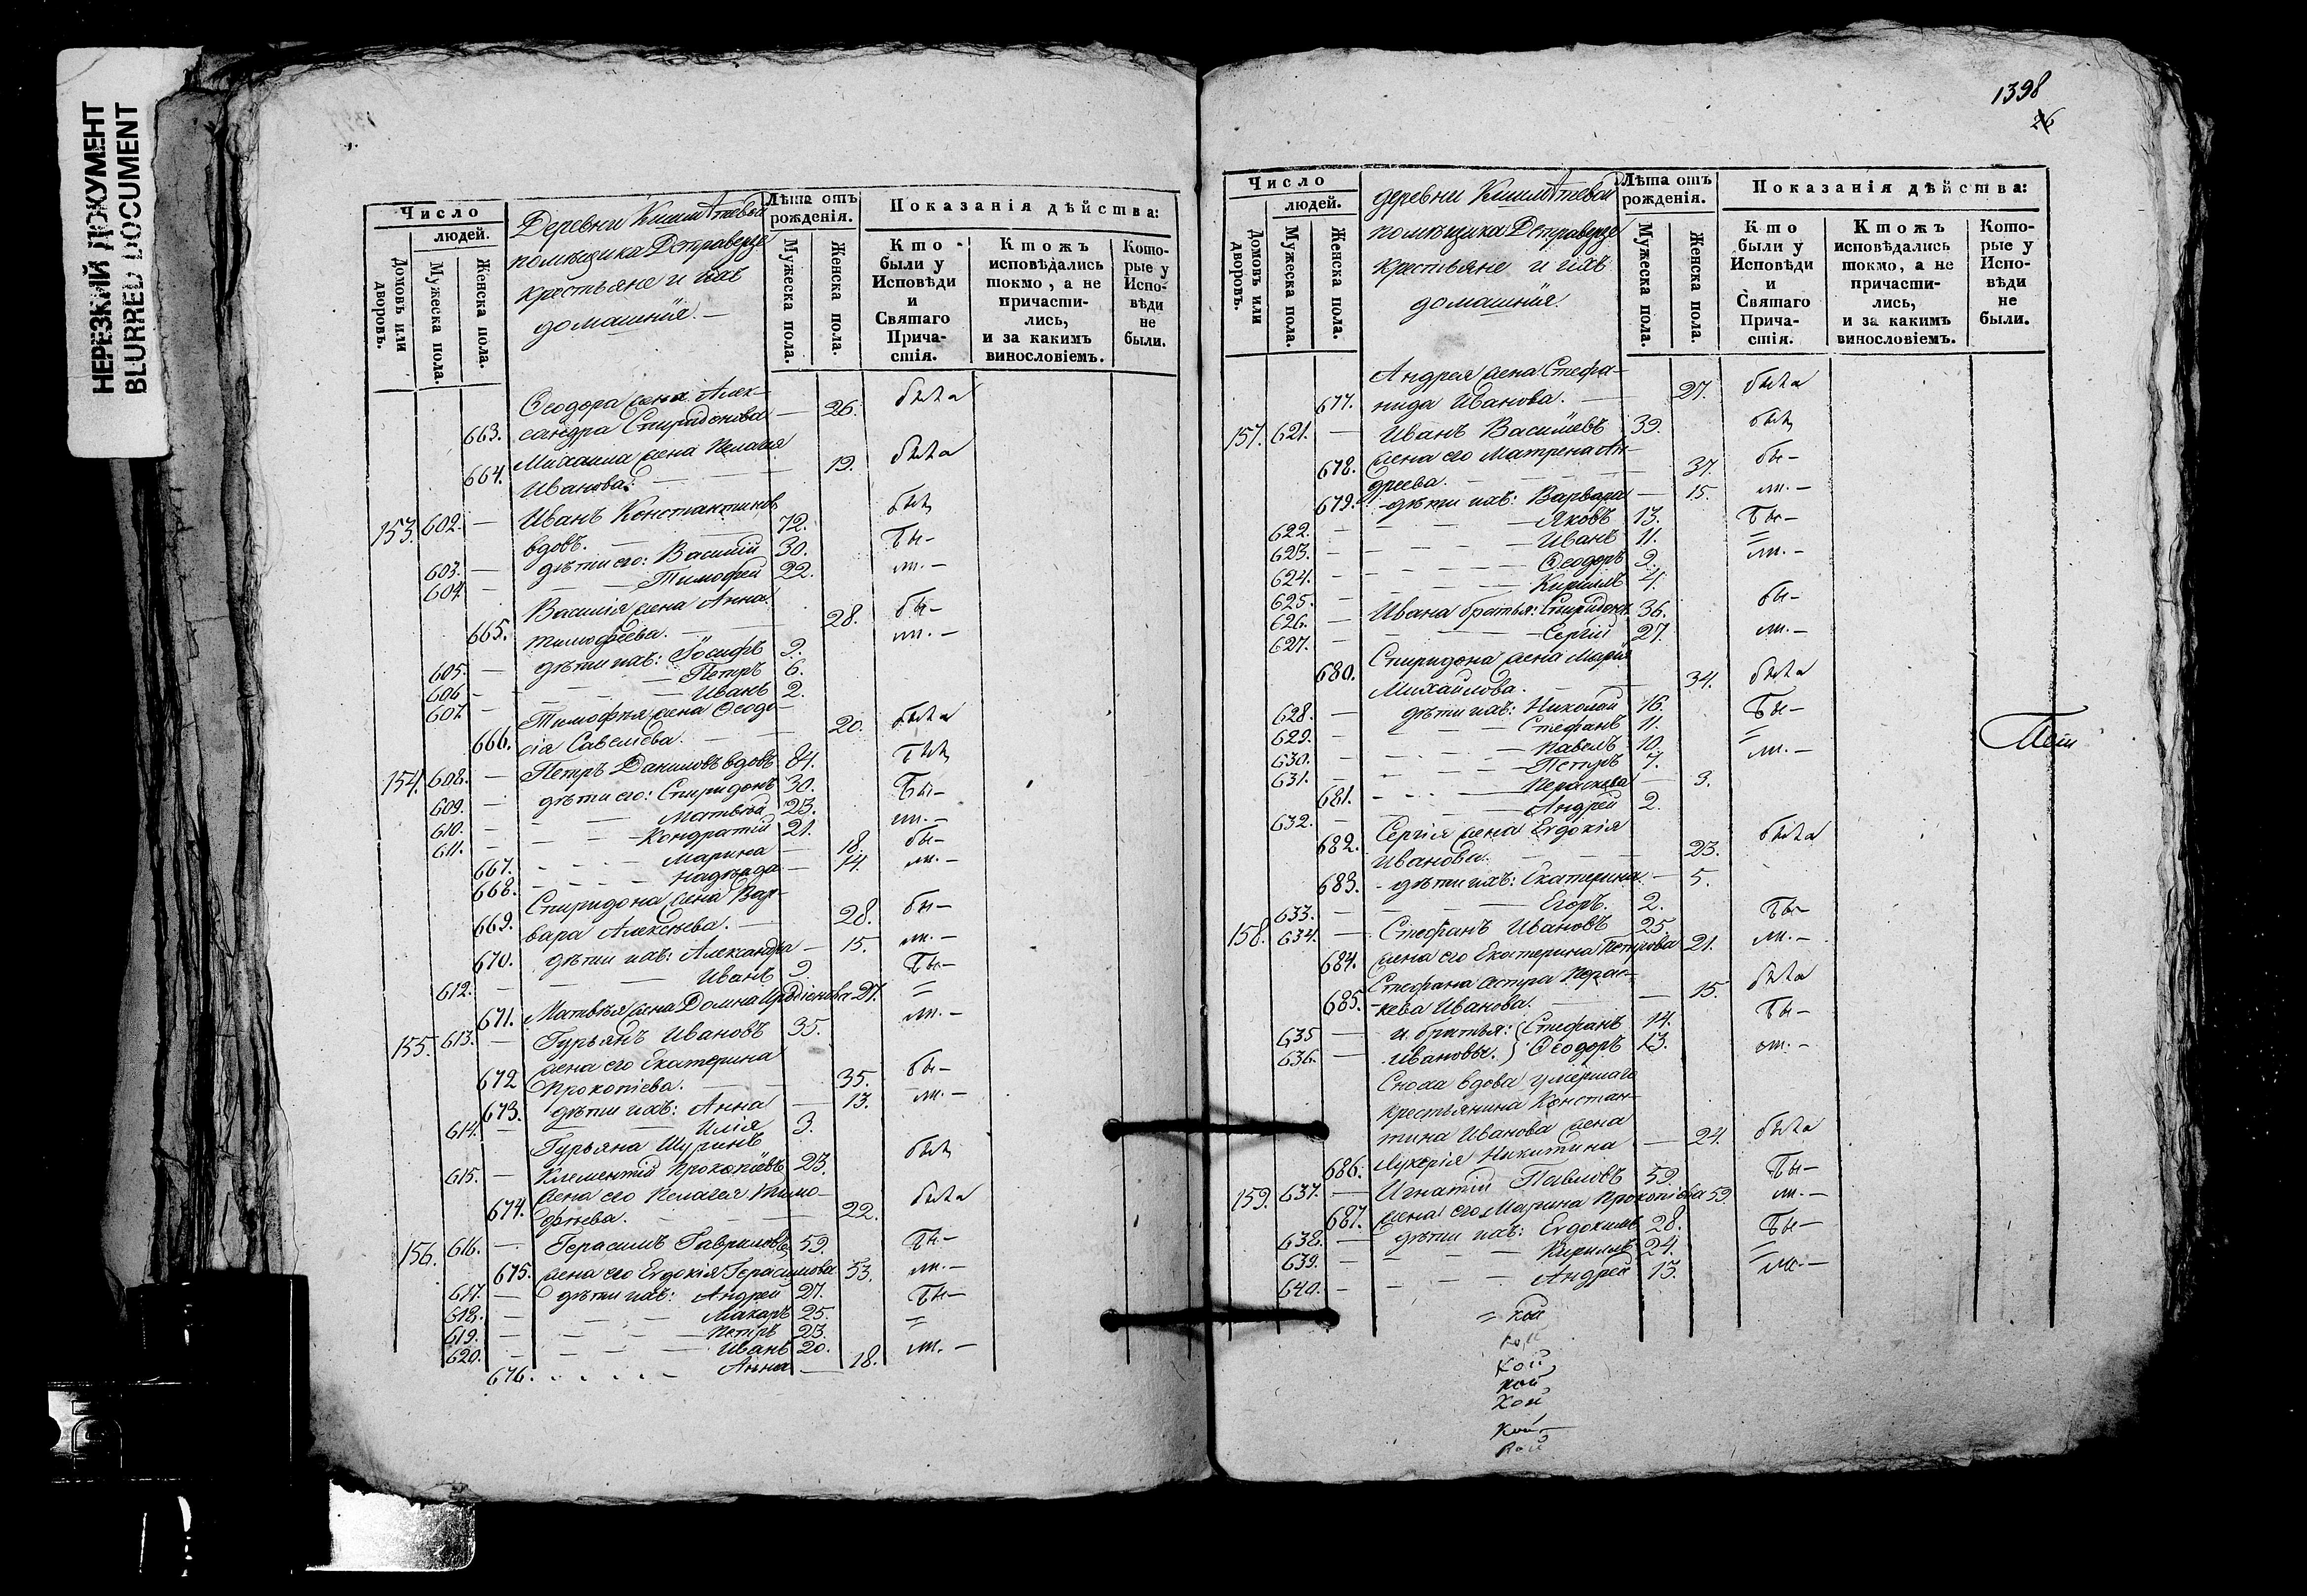 НЕРЕЗКИЙ ДОКУМЕНТ
BLURRED DOCUMENT
Число
людей.
Домовъ или дворовъ.
Мужеска пола.
Женска пола.
Деревни
помѣщика
крестьяне и ихъ
домашнія. —
Лѣта отъ рожденія.
Мужеска пола.
Женска пола.
Показанія дѣйства:
Кто были у Исповѣди и Святаго Причастія.
Ктожъ исповѣдались токмо, а не причастились, и за какимъ винословіемъ.
Которые у Исповѣди не были.
Ѳеодора жена Алек-
663. сандра Спиридонова — 26. была
Михаила жена Пелагея
664. Иванова. — 19. была
153. 602. — Иванъ Константиновъ
вдовъ. — 72. былъ
603. — дѣти его: Василій 30. бы-
604. — Тимофей 22. ли. —
Василія жена Анна
665. Тимофеева. — 28. бы-
605. — дѣти ихъ: Іосифъ 9. ли. —
606 — Петръ 6.
607. — Иванъ 2.
Тимофея жена Ѳеодо-
666. сія Савелiева. — 20. была
154. 608. — Петръ Даниловъ вдовъ 84. былъ
609. — дѣти его: Спиридонъ 30. бы-
610. — Матвѣй 23.
611. — Кондратій 21. ли. —
667. Марина — 18. бы-
668. Надежда — 14. ли. —
Спиридона жена Вар-
669. вара Алексѣева. — 28. бы-
670. дѣти ихъ: Александра — 15. ли. —
612. — Иванъ 9. бы-
671. Матвѣя жена Домна Иродіонова 21. =
155. 613. — Гурьянъ Ивановъ 35. ли. —
жена его Екатерина
672 Прокопіева. — 35. бы-
673. дѣти ихъ: Анна — 13. ли. —
614. — Илія 3.
Гурьяна Шуринъ
615. — Климентій Прокопіевъ 23. былъ
жена его Пелагея Тимо-
674. фѣева. — 22. была
156. 616. — Герасимъ Гавриловъ 59. бы-
675. жена его Евдокія Герасимова 53. ли. —
617. — дѣти ихъ: Андрей 27. бы-
618. — Макаръ 25.
619. — Петръ 23. =
620. — Иванъ 20.
676. Анна — 18. ли. —
1398
26
Число
людей.
Домовъ или дворовъ.
Мужеска пола.
Женска пола.
деревни
помѣщика
крестьяне и ихъ
домашнія.
Лѣта отъ рожденія.
Мужеска пола.
Женска пола
Показанія дѣйства:
Кто были у Исповѣди и Святаго Причастія.
Ктожъ исповѣдались токмо, а не причастились, и за какимъ винословіемъ.
Которые у Исповѣди не были.
Андрея жена Стефа-
677. нида Иванова. — 27. была
157. 621. — Иванъ Васильевъ 39. былъ
жена его Матрена Ан-
678. дреева. — 37. бы-
679. - дѣти ихъ: Варвара — 15. ли. —
622. — Яковъ 13. бы-
623. — Иванъ 11. =
624. — Ѳеодоръ 9. ли. —
625. — Кириллъ 4.
626. — Ивана братья: Спиридонъ 36. бы-
627. — Сергій 27. ли. —
Спиридона жена Марія
680. Михайлова. — 34. была
628. — дѣти ихъ: Николай 16. бы-
629. — Стефанъ 11. =
630. — Павелъ 10.
631. — Петръ 7. ли. —
681. Параскева — 3.
632. — Андрей 2.
Сергія жена Евдокія
682. Иванова. — 23. была
683. - дѣти ихъ: Екатерина — 5.
633. — Егоръ. 2.
158. 634. — Стефанъ Ивановъ 25. бы-
684. жена его Екатерина Петрова 21. ли. —
Стефана сестра Парас-
685. - кева Иванова. — 15. была
635 — и братья: Стефанъ 14. бы-
636. — Ивановы. } Ѳеодоръ 13. ли. —
Сноха вдова умершаго
крестьянина Констан-
тина Иванова жена
686. Лукерія Никитина — 24. была
159. 637. — Игнатій Павловъ 59. бы-
687. жена его Марина Прокопіева 59 ли. —
638. — дѣти ихъ: Евдокимъ 28. бы-
639. — Кириллъ 24. =
640. — Андрей 13. ли. —
= кой
кой
кой
кой
кой
кой